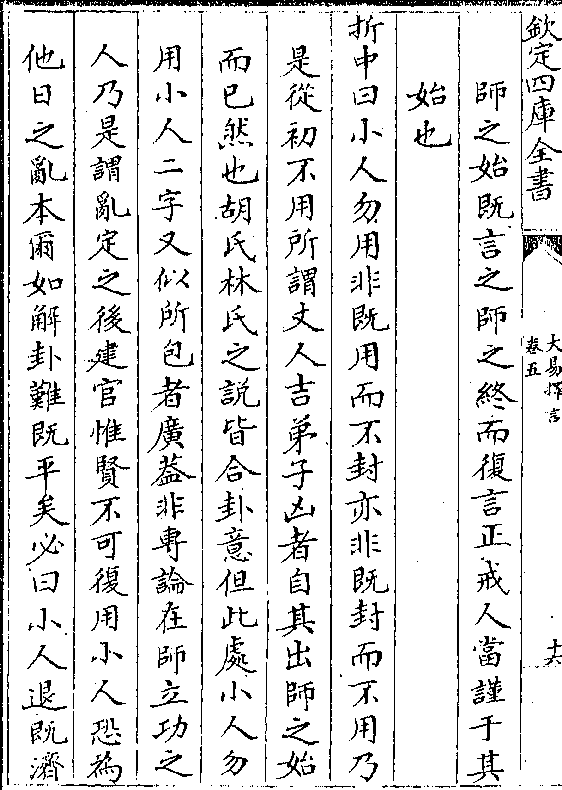 欽定四庫全書
大易擇言
卷五
十六
師之始既言之師之終而復言正戒人當謹于其
始也
折中曰小人勿用非既用而不封亦非既封而不用乃
是從初不用所謂丈人吉弟子凶者自其出師之始
而已然也胡氏林氏之說皆合卦意但此處小人勿
用小人二字又似所包者廣葢非專論在師立功之
人乃是謂亂定之後建官惟賢不可復用小人恐為
他日之亂本爾如解卦難既平矣必曰小人退既濟